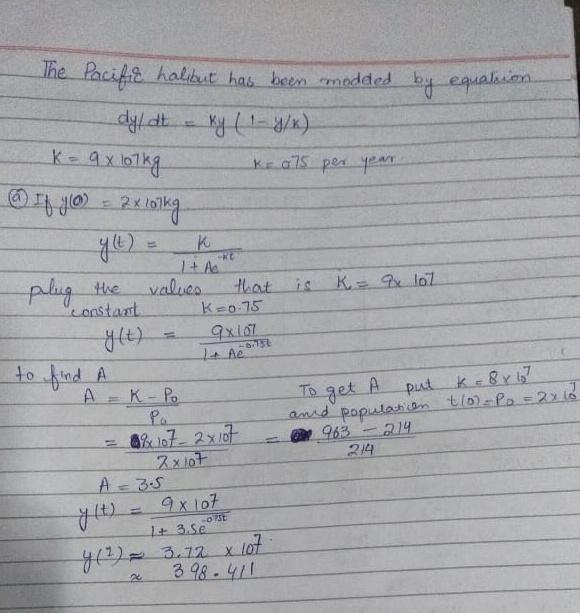 The Pacific halibut has been modded by equation
dy/dt = Ky (1 - y/K)
K = 9 x 107kg K = 075 per year
(a) If y(0) = 2 x 107kg
y(t) = K / 1 + Ae^-Kt
plug the values that is K = 9x 107
constant K = 0.75
y(t) = 9x107 / 1 + Ae^-0.75t
to find A
A = K - P₀ / P₀
To get A put K = 8 x 10^7
and population t(0) = P₀ = 2 x 10^7
= 9x 107 - 2 x 107 / 2 x 107 = 963 - 214 / 214
A = 3.5
y(t) = 9 x 107 / 1 + 3.5e^-0.75t
y(1) ≈ 3.72 x 10^7
≈ 398.411